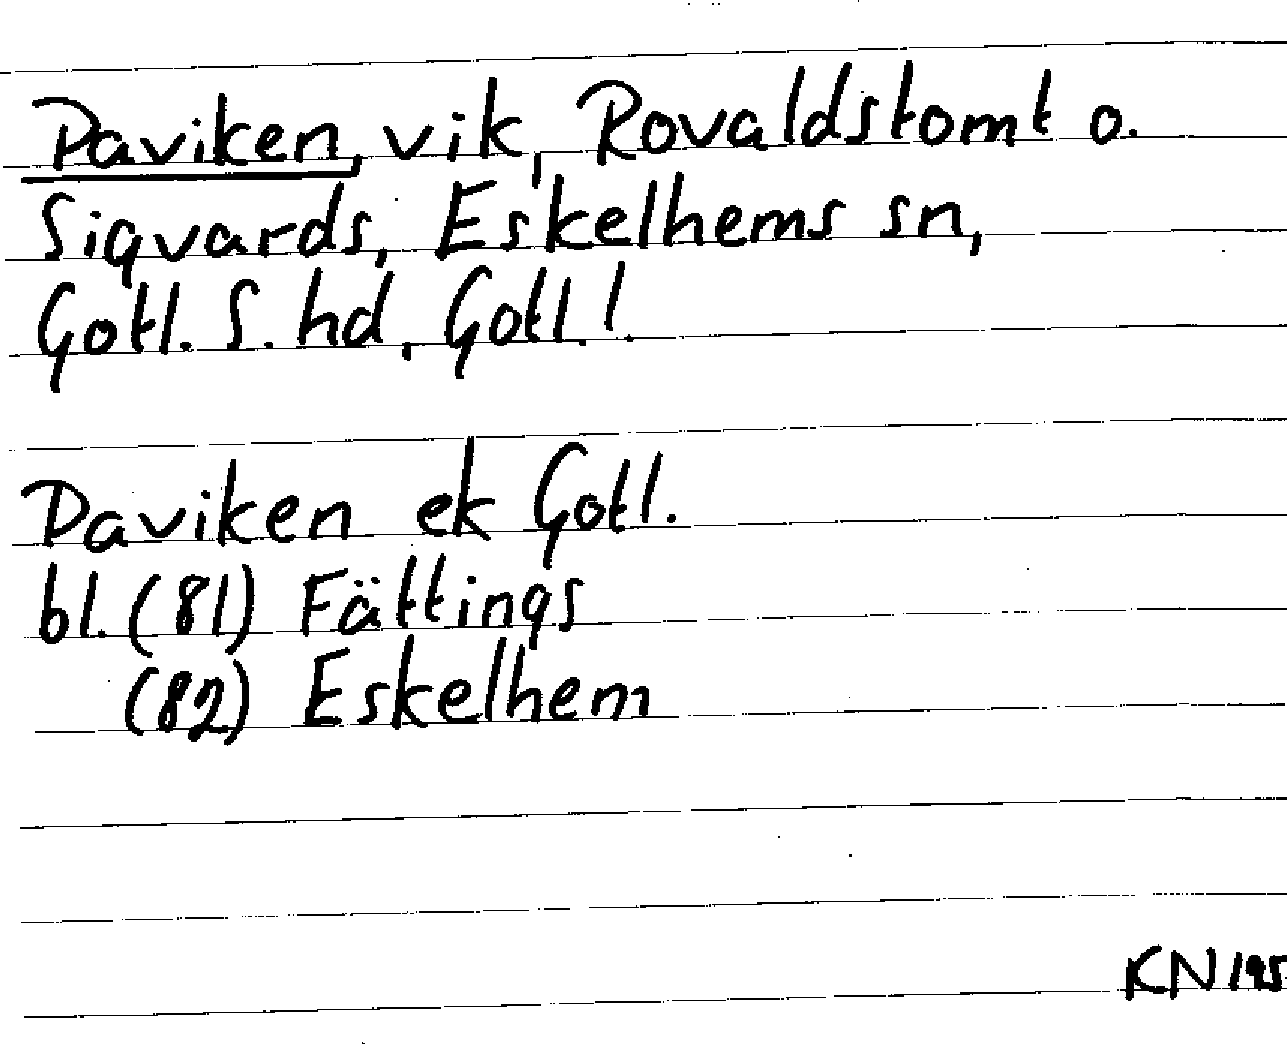 Paviken, vik, Rovaldstomt o.
Sigvards, Eskelhems sn,
Gotl. S. hd, Gotl. l.
Paviken ek Gotl.
bl. (81) Fättings
(82) Eskelhem
KN 195